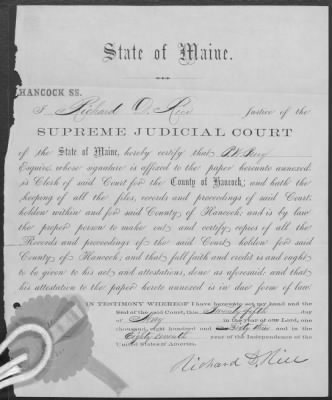 State of Maine.
HANCOCK SS.
I Richard D. Rice Justice of the
SUPREME JUDICIAL COURT
of the State of Maine, hereby certify that P W Perry
Esquire, whose signature is affixed to the paper hereunto annexed,
is Clerk of said Court for the County of Hancock; and hath the
keeping of all the files, records and proceedings of said Court
holden within and for said County of Hancock; and is by law
the proper person to make out and certify copies of all the
Records and proceedings of the said Court holden for said
County of Hancock; and that full faith and credit is and ought
to be given to his act and attestations, done as aforesaid: and that
his attestation to the paper hereto annexed is in due form of law.
IN TESTIMONY WHEREOF I have hereunto set my hand and the
Seal of the said Court, this Twenty fifth day
of May in the year of our Lord, one
thousand, eight hundred and Sixty three and in the
Eighty seventh year of the Independence of the
United States of America.
Richard D. Rice